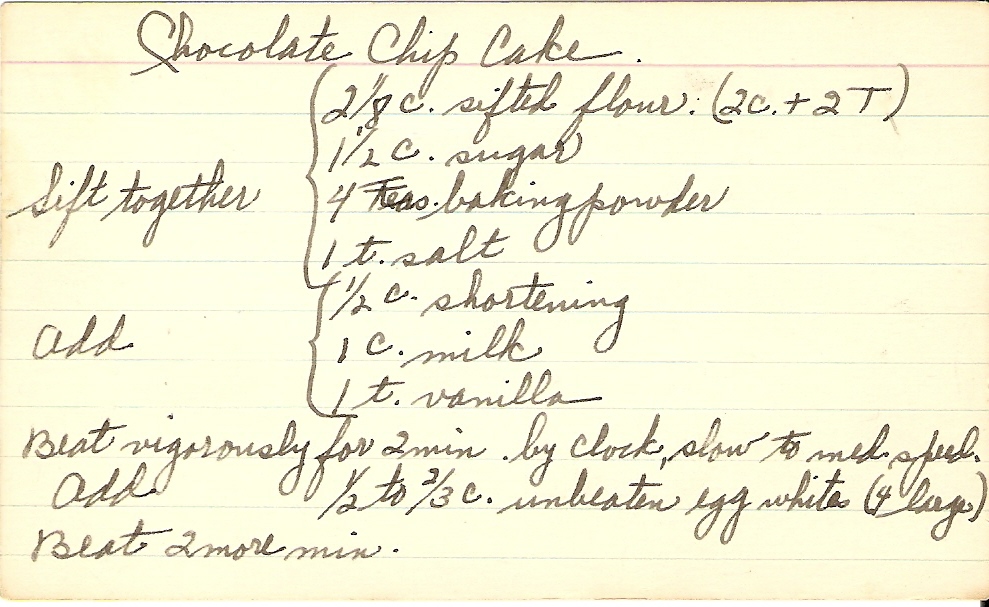 Chocolate Chip Cake.
2 1/8 c. sifted flour: (2c. + 2 T)
1 1/2 c. sugar
Sift together
4 teas. baking powder
1 t. salt
1/2 c. shortening
Add
1 c. milk
1 t. vanilla
Beat vigorously for 2 min. by clock, slow to med. speed.
Add 1/2 to 2/3 c. unbeaten egg whites (4 large)
Beat 2 more min.